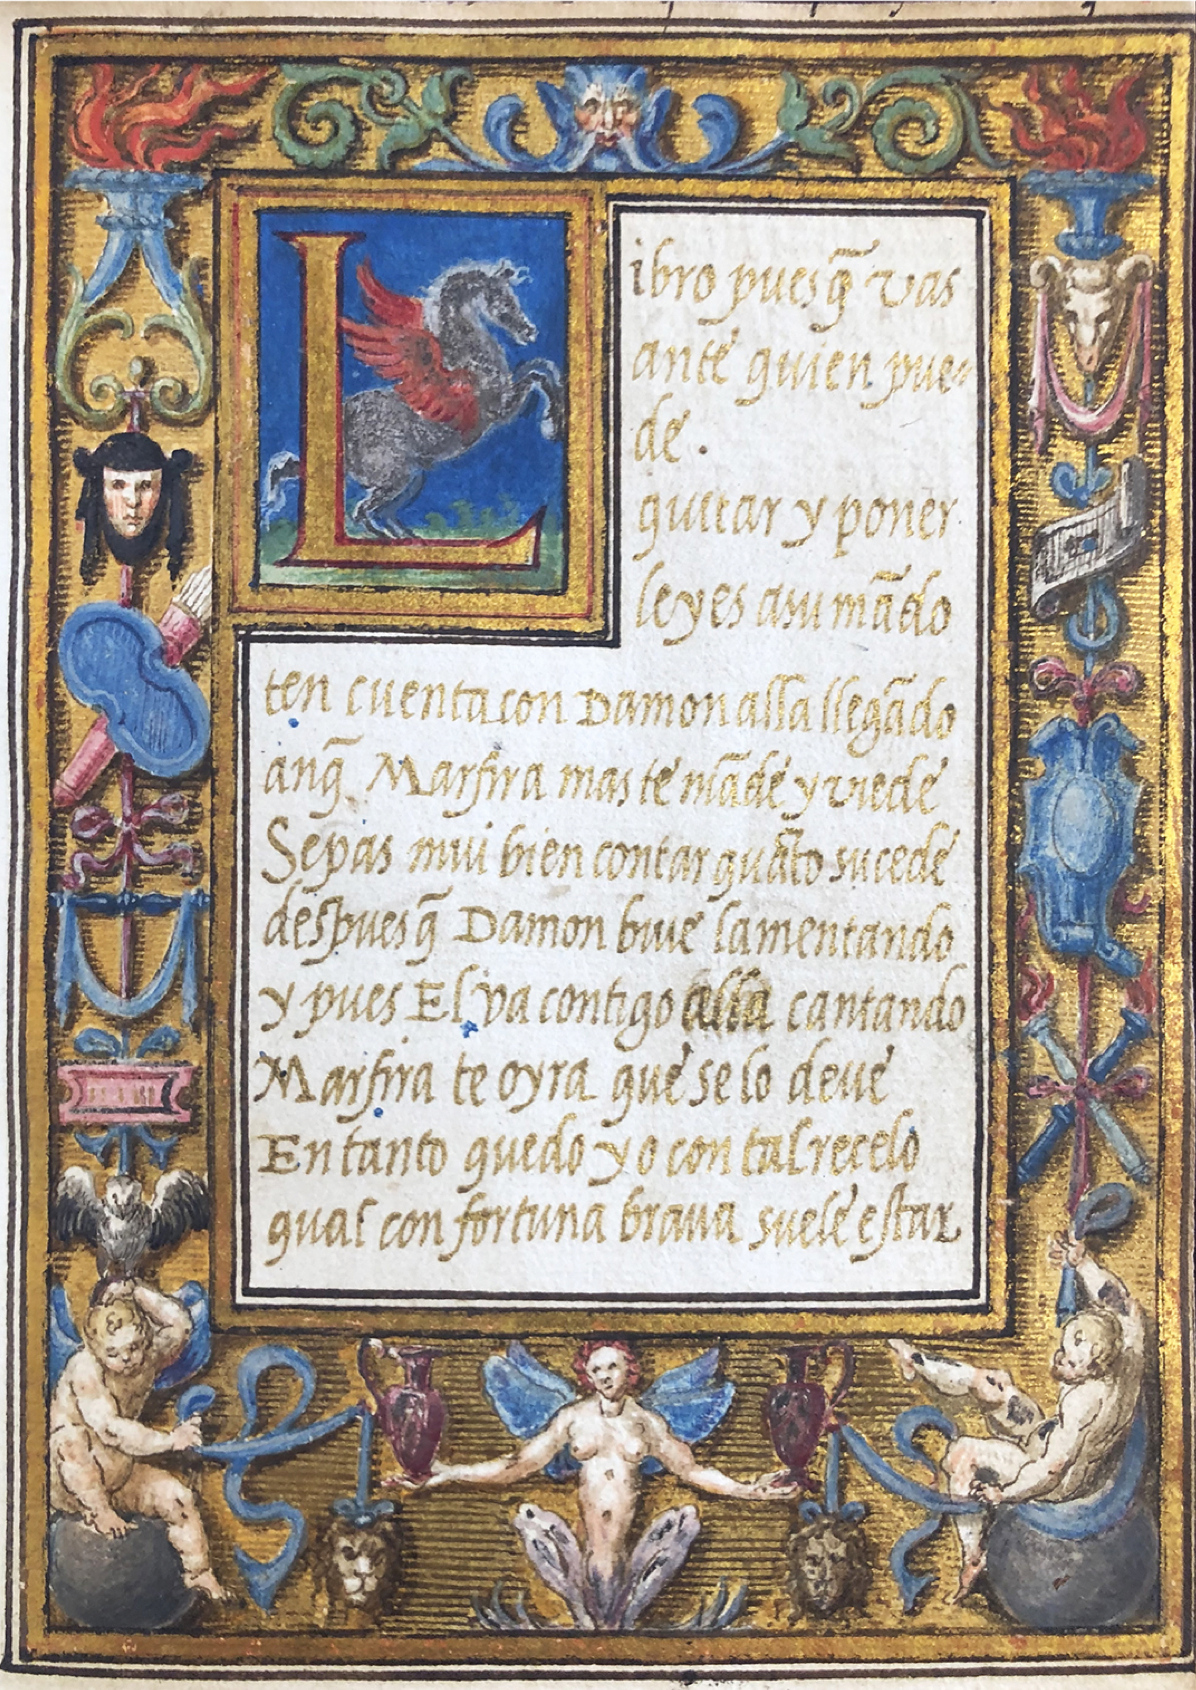 Libro pues q̃ vas
ante quien pue-
de.
quitar y poner
leyes asu mãdo
ten cuenta con Damon alla llegãdo
anq̃ Marfira mas te mãde y viede
Sepas mui bien contar quãto sucede
despues q̃ Damon biue lamentando
y pues El va contigo alla cantando
Marfira te oyra que se lo deue
En tanto quedo yo con tal recelo
qual con fortuna braua suele estar